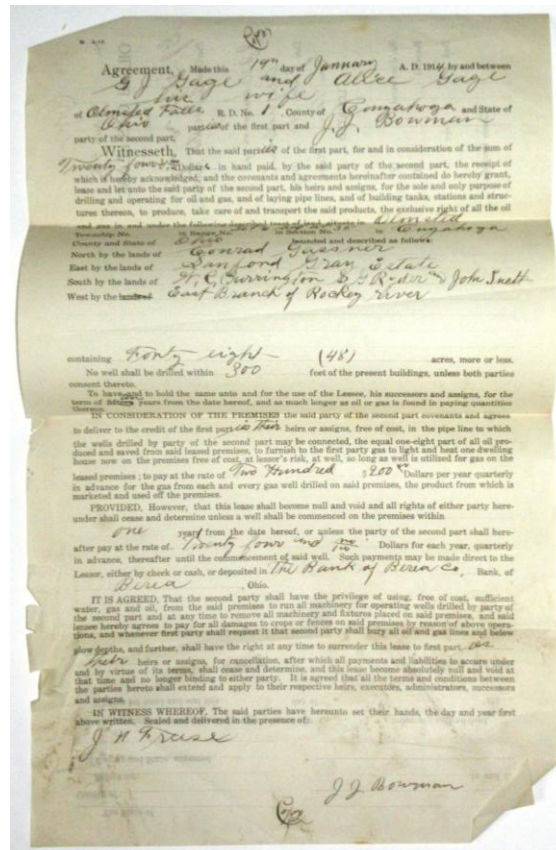 Agreement, Made this 19th day of January A. D. 1914 by and between
G J Gage and Allice Gage
his wife
of Olmsted Falls R. D. No. 1 County of Cuyahoga and State of
Ohio parties of the first part and J. J. Bowman
party of the second part.
Witnesseth, That the said parties of the first part, for and in consideration of the sum of
Twenty four Dollars in hand paid, by the said party of the second part, the receipt of
which is hereby acknowledged, and the covenants and agreements hereinafter contained do hereby grant,
lease and let unto the said party of the second part, his heirs and assigns, for the sole and only purpose of
drilling and operating for oil and gas, and of laying pipe lines, and of building tanks, stations and struc-
tures thereon, to produce, take care of and transport the said products, the exclusive right of all the oil
and gas in and under the following described tract of land, situate in Olmsted
Township No. in Range No. in Section No. in Cuyahoga
County and State of Ohio bounded and described as follows:
North by the lands of Conrad Gassner
East by the lands of Sanford Gray Estate
South by the lands of H. C. Barrington & G Ryder and John Suett
West by the lands of East Branch of Rockey river
containing Forty eight (48) acres, more or less.
No well shall be drilled within 300 feet of the present buildings, unless both parties
consent thereto.
To have and to hold the same unto and for the use of the Lessee, his successors and assigns, for the
term of years from the date hereof, and as much longer as oil or gas is found in paying quantities
thereon.
IN CONSIDERATION OF THE PREMISES the said party of the second part covenants and agrees
to deliver to the credit of the first parties their heirs or assigns, free of cost, in the pipe line to which
the wells drilled by party of the second part may be connected, the equal one-eight part of all oil pro-
duced and saved from said leased premises, to furnish to the first party gas to light and heat one dwelling
house now on the premises free of cost, at lessor's risk, at well, so long as well is utilized for gas on the
leased premises; to pay at the rate of Two Hundred 200 Dollars per year quarterly
in advance for the gas from each and every gas well drilled on said premises, the product from which is
marketed and used off the premises.
PROVIDED, However, that this lease shall become null and void and all rights of either party here-
under shall cease and determine unless a well shall be commenced on the premises within
one year from the date hereof, or unless the party of the second part shall here-
after pay at the rate of Twenty four and no/100 Dollars for each year, quarterly
in advance, thereafter until the commencement of said well. Such payments may be made direct to the
Lessor, either by check or cash, or deposited in The Bank of Berea Co. Bank, of
Berea, Ohio.
IT IS AGREED, That the second party shall have the privilege of using, free of cost, sufficient
water, gas and oil, from the said premises to run all machinery for operating wells drilled by party of
the second part and at any time to remove all machinery and fixtures placed on said premises, and said
lessee hereby agrees to pay for all damages to crops or fences on said premises by reason of above opera-
tions, and whenever first party shall request it that second party shall bury all oil and gas lines and below
plow depths, and further, shall have the right at any time to surrender this lease to first part, or
their heirs or assigns, for cancellation, after which all payments and liabilities to accrue under
and by virtue of its terms, shall cease and determine, and this lease become absolutely null and void at
that time and no longer binding to either party. It is agreed that all the terms and conditions between
the parties hereto shall extend and apply to their respective heirs, executors, administrators, successors
and assigns.
IN WITNESS WHEREOF, The said parties have hereunto set their hands, the day and year first
above written. Sealed and delivered in the presence of:
J H Freese
J J Bowman